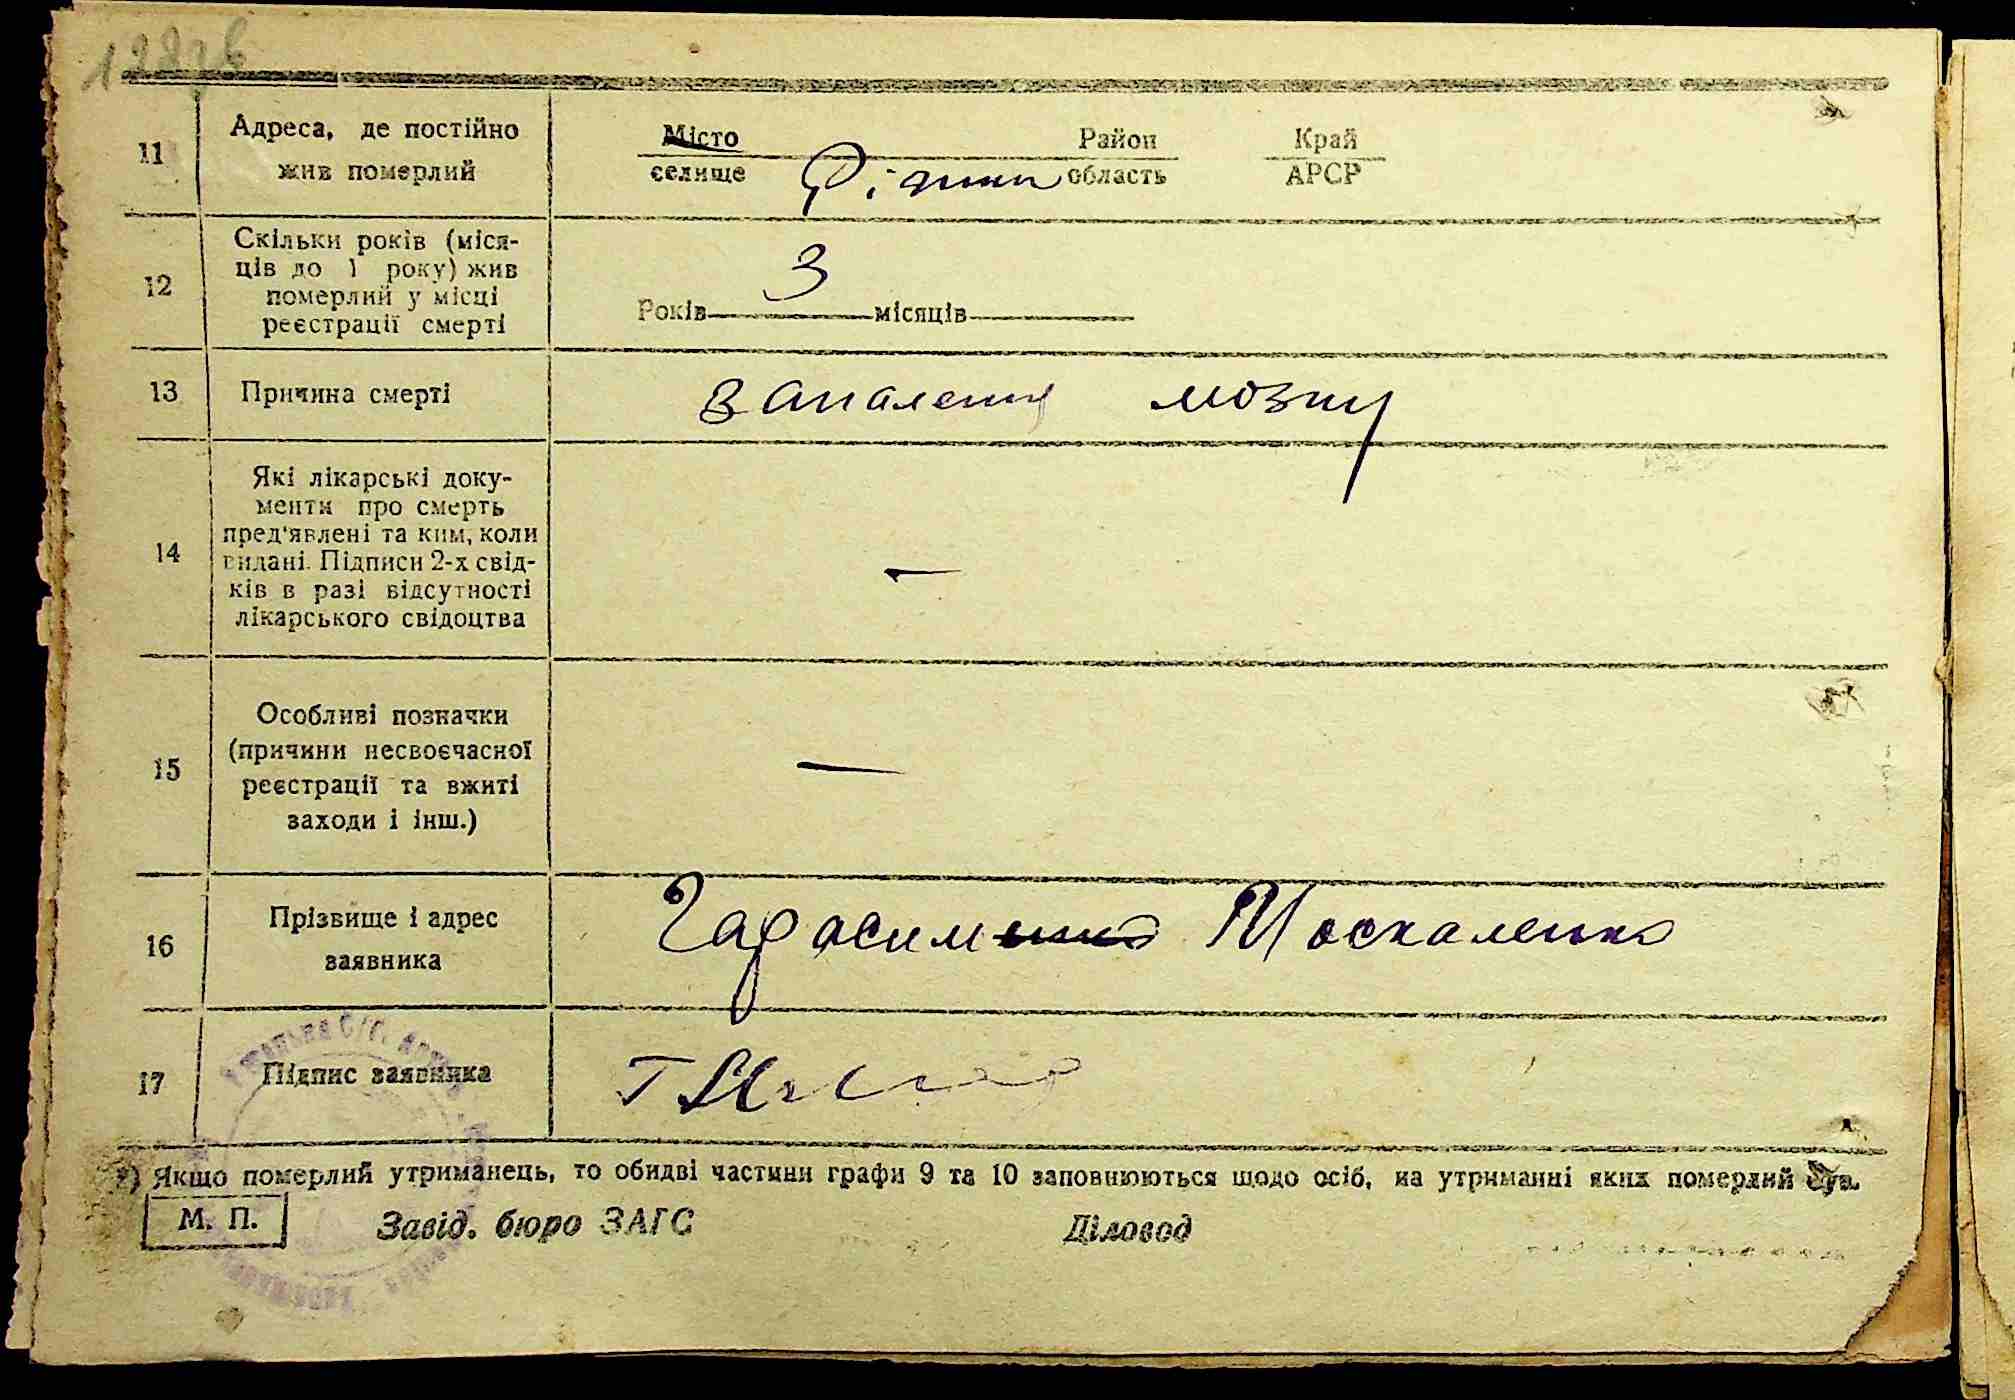 11
Адреса, де постійно
жив померлий
Місто Район Край
селище область АРСР
12
Скільки років (міся-
ців до 1 року) жив
померлий у місці
реєстрації смерті
3
Років місяців
13
Причина смерті
запалення мозку
14
Які лікарські доку-
менти про смерть
пред'явлені та ким, коли
видані. Підписи 2-х свід-
ків в разі відсутності
лікарського свідоцтва
—
15
Особливі позначки
(причини несвоєчасної
реєстрації та вжиті
заходи і інш.)
—
16
Прізвище і адрес
заявника
Гарасименко Москаленко
17
Підпис заявника
*) Якщо померлий утриманець, то обидві частини графи 9 та 10 заповнюються щодо осіб, на утриманні яких померлий був.
М. П.
Завід. бюро ЗАГС
Діловод